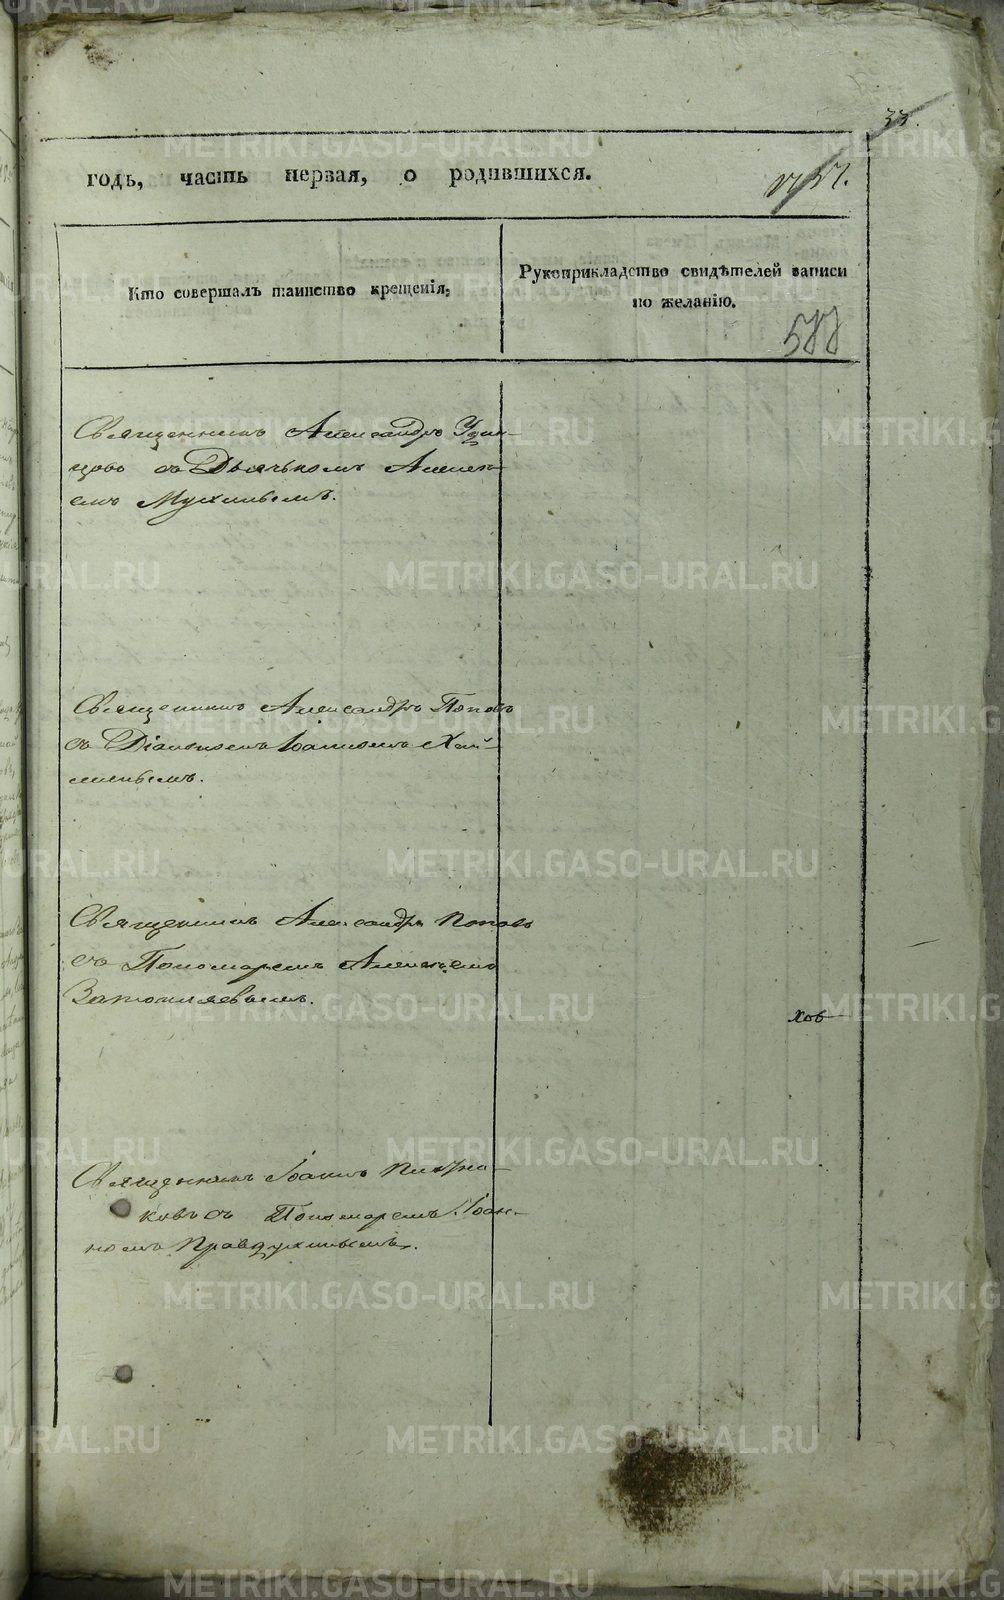 33.
годъ, часть первая, о родившихся.
Кто совершалъ таинство крещенія,
Рукоприкладство свидѣтелей записи
по желанію.
588
Священникъ Александръ Удин-
цовъ съ Дьячькомъ Алексѣ-
емъ Мухинымъ.
Священникъ Александръ Поповъ
съ Діакономъ Іоанномъ
Священникъ Александръ Поповъ
съ Пономаремъ Алексѣемъ
Священникъ Іоаннъ
ковъ съ Пономаремъ Іоан-
номъ Правдухинымъ.
METRIKI.GASO-URAL.RU